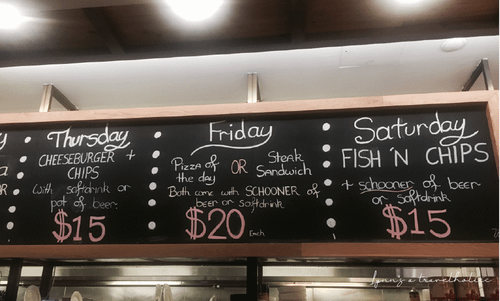 Thursday
CHEESEBURGER +
CHIPS
With softdrink or
pot of beer.
$15
Friday
Pizza of
the day
OR
Steak
Sandwich
Both come with SCHOONER of
beer or softdrink
$20 Each
Saturday
FISH 'N CHIPS
+ schooner of beer
or softdrink
$15
lynn's a travelholic